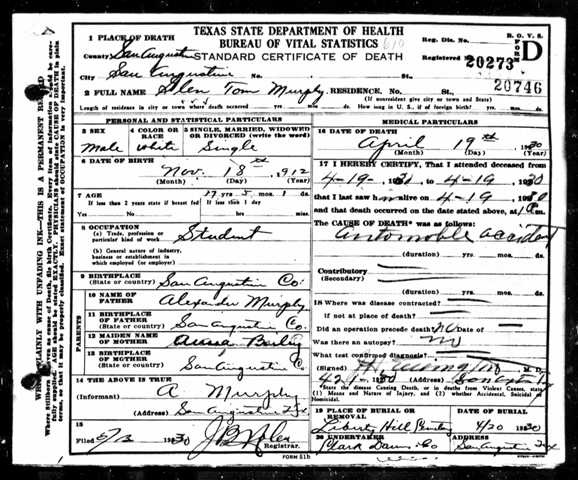 TEXAS STATE DEPARTMENT OF HEALTH
BUREAU OF VITAL STATISTICS 610
STANDARD CERTIFICATE OF DEATH
B. O. V. S.
FORM D
Reg. Dis. No.
Registered 20273
20746
1 PLACE OF DEATH
County San Augustine
City San Augustine No. St.
2 FULL NAME Tom Murphy RESIDENCE. No. St.
(If nonresident give city or town and State)
Length of residence in city or town where death occurred yrs. mos. ds. How long in U. S., if of foreign birth? yrs. mos. ds.
PERSONAL AND STATISTICAL PARTICULARS
3 SEX
Male
4 COLOR OR RACE
White
5 SINGLE, MARRIED, WIDOWED OR DIVORCED (write the word)
Single
6 DATE OF BIRTH
Nov. 18th 1912
(Month) (Day) (Year)
7 AGE 17 5 1
Yrs. Mos. Ds.
If less than 2 years state if breast fed If less than 1 day
8 OCCUPATION
(a) Trade, profession or particular kind of work Student
(b) General nature of industry, business or establishment in which employed (or employer)
9 BIRTHPLACE
(State or country) San Augustine Co.
PARENTS
10 NAME OF FATHER Alexander Murphy
11 BIRTHPLACE OF FATHER
(State or country) San Augustine Co.
12 MAIDEN NAME OF MOTHER
13 BIRTHPLACE OF MOTHER
(State or country) San Augustine Co
14 THE ABOVE IS TRUE
(Informant) A Murphy
(Address) San Augustine Tex
15
Filed 5/3 1930
Registrar.
FORM 51b
MEDICAL PARTICULARS
16 DATE OF DEATH
April 19th 1930
(Month) (Day) (Year)
17 I HEREBY CERTIFY, That I attended deceased from
4-19- 1930 to 4-19 1930
that I last saw him alive on 4-19 1930
and that death occurred on the date stated above, at m.
The CAUSE OF DEATH* was as follows:
Automobile accident
(duration) yrs. mos. ds.
Contributory
(Secondary)
(duration) yrs. mos. ds.
18 Where was disease contracted?
if not at place of death?
Did an operation precede death? No Date of
Was there an autopsy? No
What test confirmed diagnosis?
(Signed) M. D.
1930 (Address)
State the disease Causing Death, or in deaths from Violent Causes, state (1) Means and Nature of Injury, and (2) whether Accidental, Suicidal or Homicidal.
19 PLACE OF BURIAL OR REMOVAL
Liberty Hill
4/20 1930
20 UNDERTAKER
Clark Co
ADDRESS
San Augustine Tex